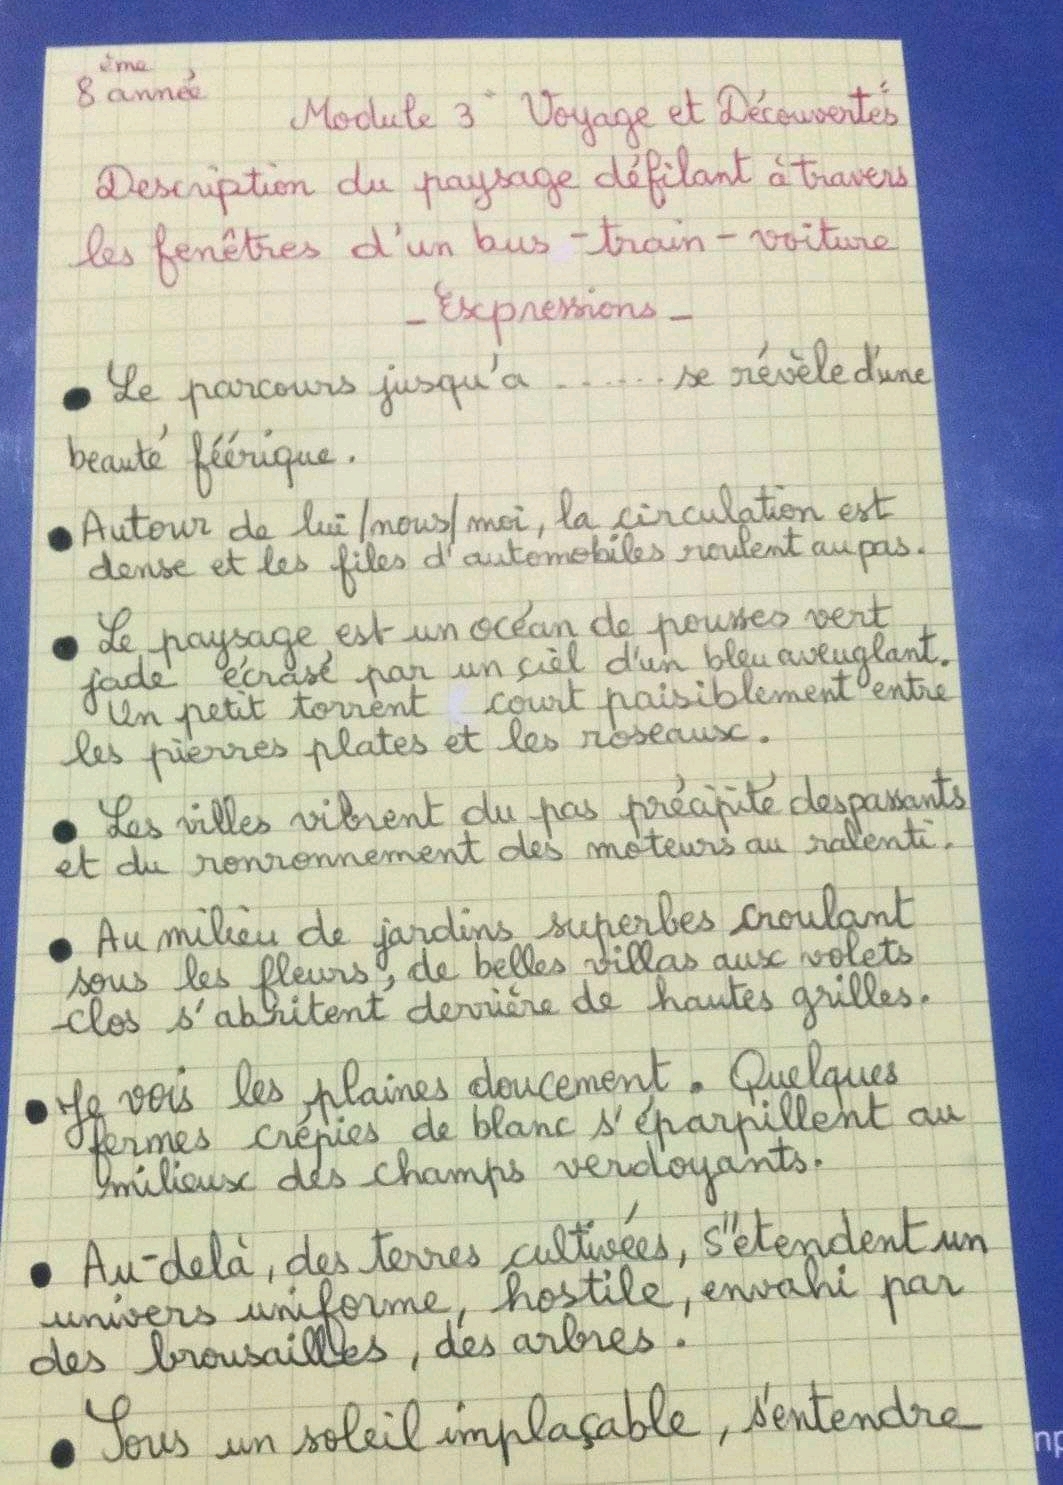 8 ème année
Module 3 Voyage et Découvertes
Description du paysage défilant à travers
les fenêtres d'un bus - train - voiture
- Expressions -
• Le parcours jusqu'a ...... se révèle d'une
beauté féérique.
• Autour de lui/nous/moi, la circulation est
dense et les files d'automobiles roulent au pas.
• Le paysage est un océan de pousses vert
jade écrasé par un ciel d'un bleu aveuglant.
Un petit torrent court paisiblement entre
les pierres plates et les roseaux.
• Les villes vibrent du pas précipité des passants
et du ronronnement des moteurs au ralenti.
• Au milieu de jardins superbes croulant
sous les fleurs, de belles villas aux volets
clos s'abritent derrière de hautes grilles.
• Je vois les plaines doucement. Quelques
fermes crépies de blanc s'éparpillent au
milieux des champs verdoyants.
• Au-delà, des terres cultivées, s'étendent un
univers uniforme, hostile, envahi par
des brousailles, des arbres.
• Sous un soleil implaçable, s'entendre
np